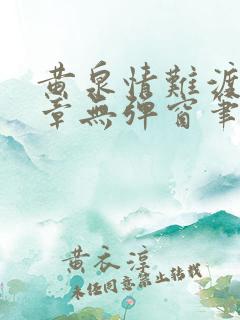 黄泉情難渡
章無弹窗筆
黄衣淳
未经同意禁止转载